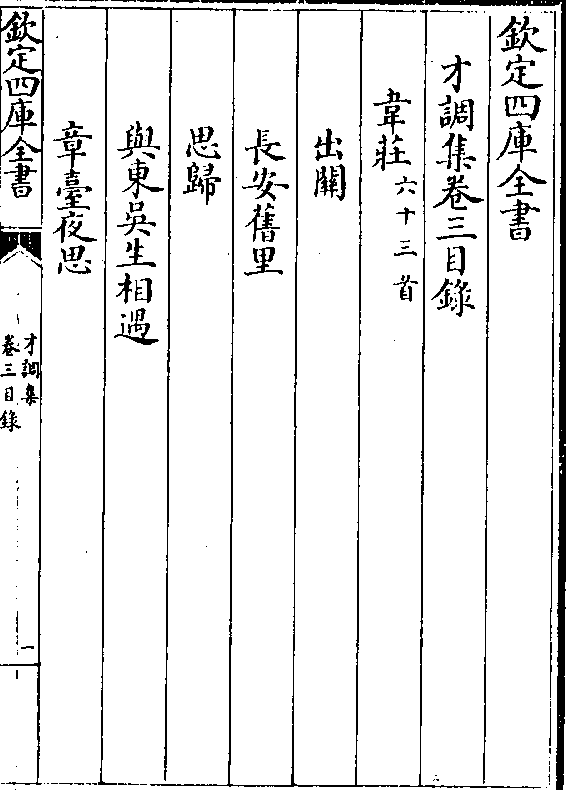 欽定四庫全書
才調集卷三目錄
韋莊六十三首
出關
長安舊里
思歸
與東吳生相遇
章臺夜思
欽定四庫全書
才調集
卷三目錄
一